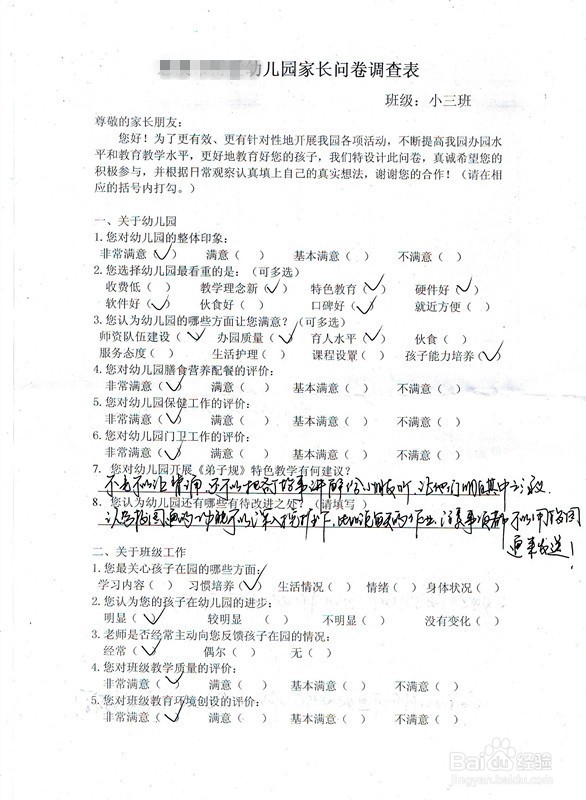 幼儿园家长问卷调查表
班级：小三班
尊敬的家长朋友：
您好！为了更有效、更有针对性地开展我园各项活动，不断提高我园办园水
平和教育教学水平，更好地教育好您的孩子，我们特设计此问卷，真诚希望您的
积极参与，并根据日常观察认真填上自己的真实想法，谢谢您的合作！（请在相
应的括号内打勾。）
一、关于幼儿园
1.您对幼儿园的整体印象：
非常满意（✓） 满意（ ） 基本满意（ ） 不满意（ ）
2.您选择幼儿园最看重的是：（可多选）
收费低（ ） 教学理念新（✓） 特色教育（✓） 硬件好（✓）
软件好（✓） 伙食好（ ） 口碑好（✓） 就近方便（ ）
3.您认为幼儿园的哪些方面让您满意？（可多选）
师资队伍建设（✓） 办园质量（✓） 育人水平（✓） 伙食（ ）
服务态度（ ） 生活护理（ ） 课程设置（ ） 孩子能力培养（✓）
4.您对幼儿园膳食营养配餐的评价：
非常满意（✓） 满意（ ） 基本满意（ ） 不满意（ ）
5.您对幼儿园保健工作的评价：
非常满意（✓） 满意（ ） 基本满意（ ） 不满意（ ）
6.您对幼儿园门卫工作的评价：
非常满意（✓） 满意（ ） 基本满意（ ） 不满意（ ）
7.您对幼儿园开展《弟子规》特色教学有何建议？
不光可以让背诵，还可以把它故事讲解给小朋友听，让他们明白其中之义
8.您认为幼儿园还有哪些有待改进之处？（请填写）
认为校园通的功能可以深入探讨下，比如说每天的作业、注意事项都可以用校园
通来发送！
二、关于班级工作
1.您最关心孩子在园的哪些方面：
学习内容（ ） 习惯培养（✓） 生活情况（ ） 情绪（ ） 身体状况（ ）
2.您认为您的孩子在幼儿园的进步：
明显（✓） 较明显（ ） 不明显（ ） 没有变化（ ）
3.老师是否经常主动向您反馈孩子在园的情况：
经常（✓） 偶尔（ ） 无（ ）
4.您对班级教学质量的评价：
非常满意（✓） 满意（ ） 基本满意（ ） 不满意（ ）
5.您对班级教育环境创设的评价：
非常满意（✓） 满意（ ） 基本满意（ ） 不满意（ ）
Baidu经验
jingyan.baidu.com